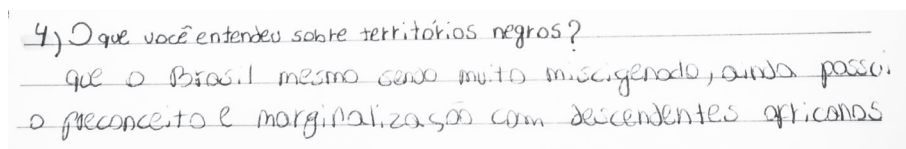 4) O que você entendeu sobre territórios negros?
que o Brasil mesmo sendo muito miscigenado, ainda possui
o preconceito e marginalização com descendentes africanos